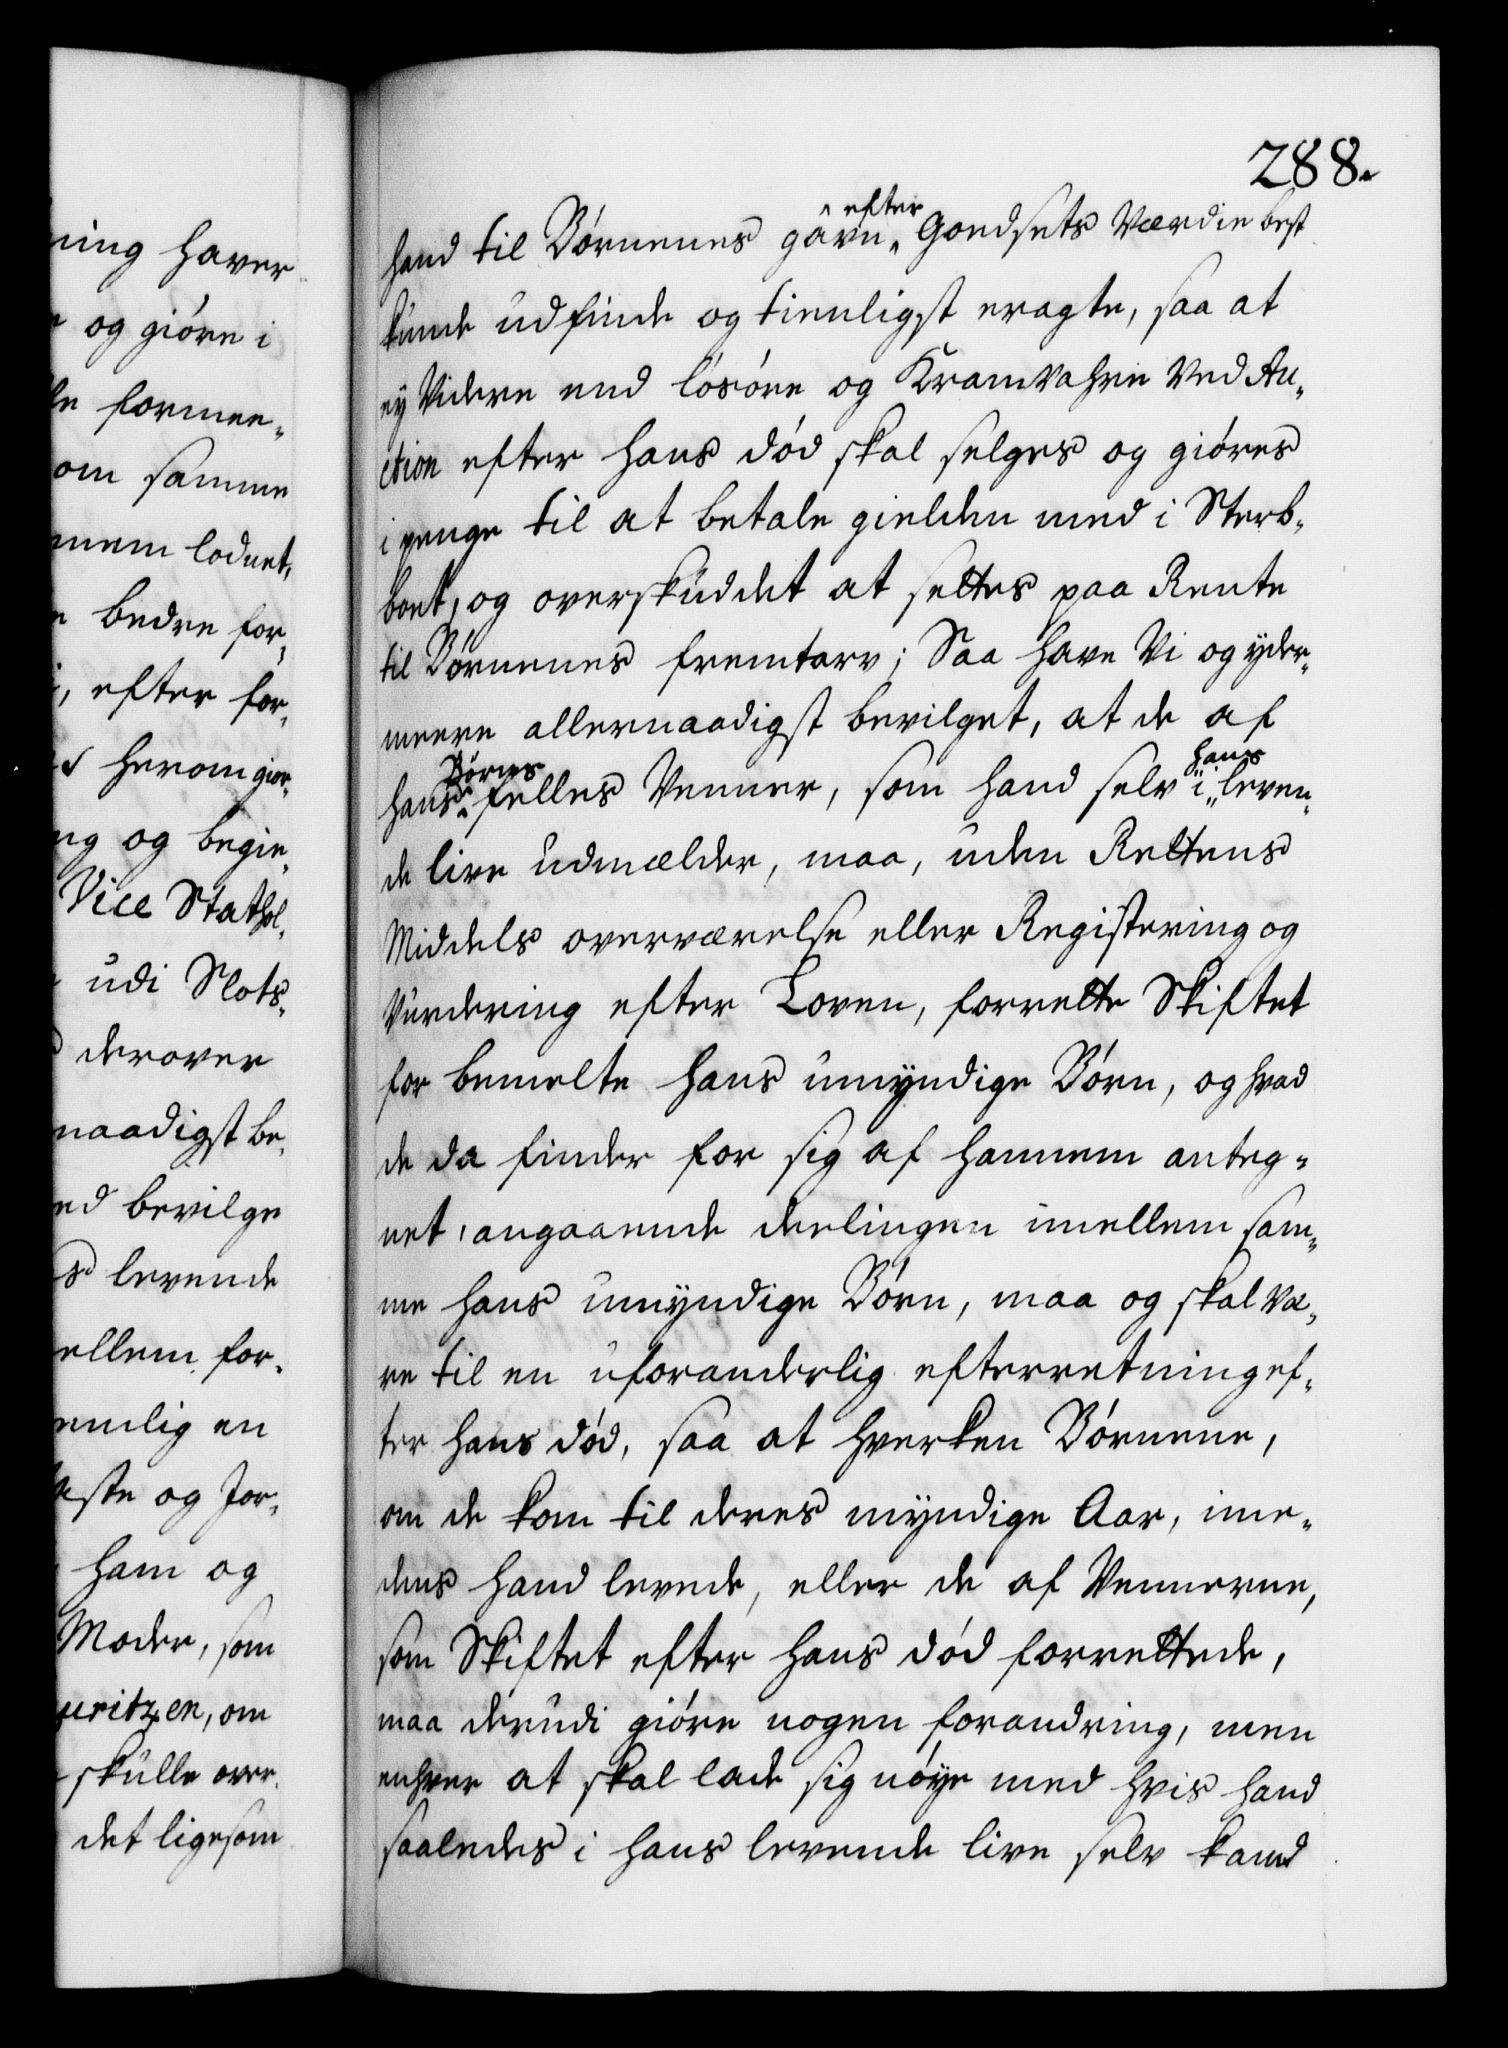 ning haver
og giöre i
le formee„
om samme
mem lodnet,
bedre for„
i, efter for„
herom gior„
ng og begie„
Vice Stathol„
udi Slots„
derover
naadigst be„
ed bevilge
s levende
ellem for„
emlig en
aste og Jor„
ham og
Moder, som
uritzen, om
skulle over„
det ligesom
288.
hand til Börnenes gavn efter Goedsets Værdie best
kunde udfinde og tienligst eragte, saa at
ey Videre end lösöre og KramVahre Ved Au„
ction efter hans död skal selges og giöres
i penge til at betale gielden med i Sterb„
boet, og overskuddet at settes paa Rente
til Börnenes fremtarv; Saa have Vi og yder„
meere allernaadigst bevilget, at de af
hans Börnes felles Venner, som hand selv i hans leven„
de live udmælder, maa, uden Rettens
Middels overværelse eller Registering og
Vurdering efter Loven, forrette Skiftet
for bemelte hans umyndige Börn, og hvad
de da finder for sig af hannem anteg„
net, angaaende deelingen imellem sam„
me hans umyndige Börn, maa og skal Væ„
re til en uforanderlig efterretning ef„
ter hans död, saa at hverken Börnene,
om de kom til deres myndige Aar, ime„
dens hand levede, eller de af Vennerne,
som Skiftet efter hans död forrettede,
maa derudi giöre nogen forandring, men
enhver at skal lade sig nöye med hvis hand
saaledes i hans levende live selv kand